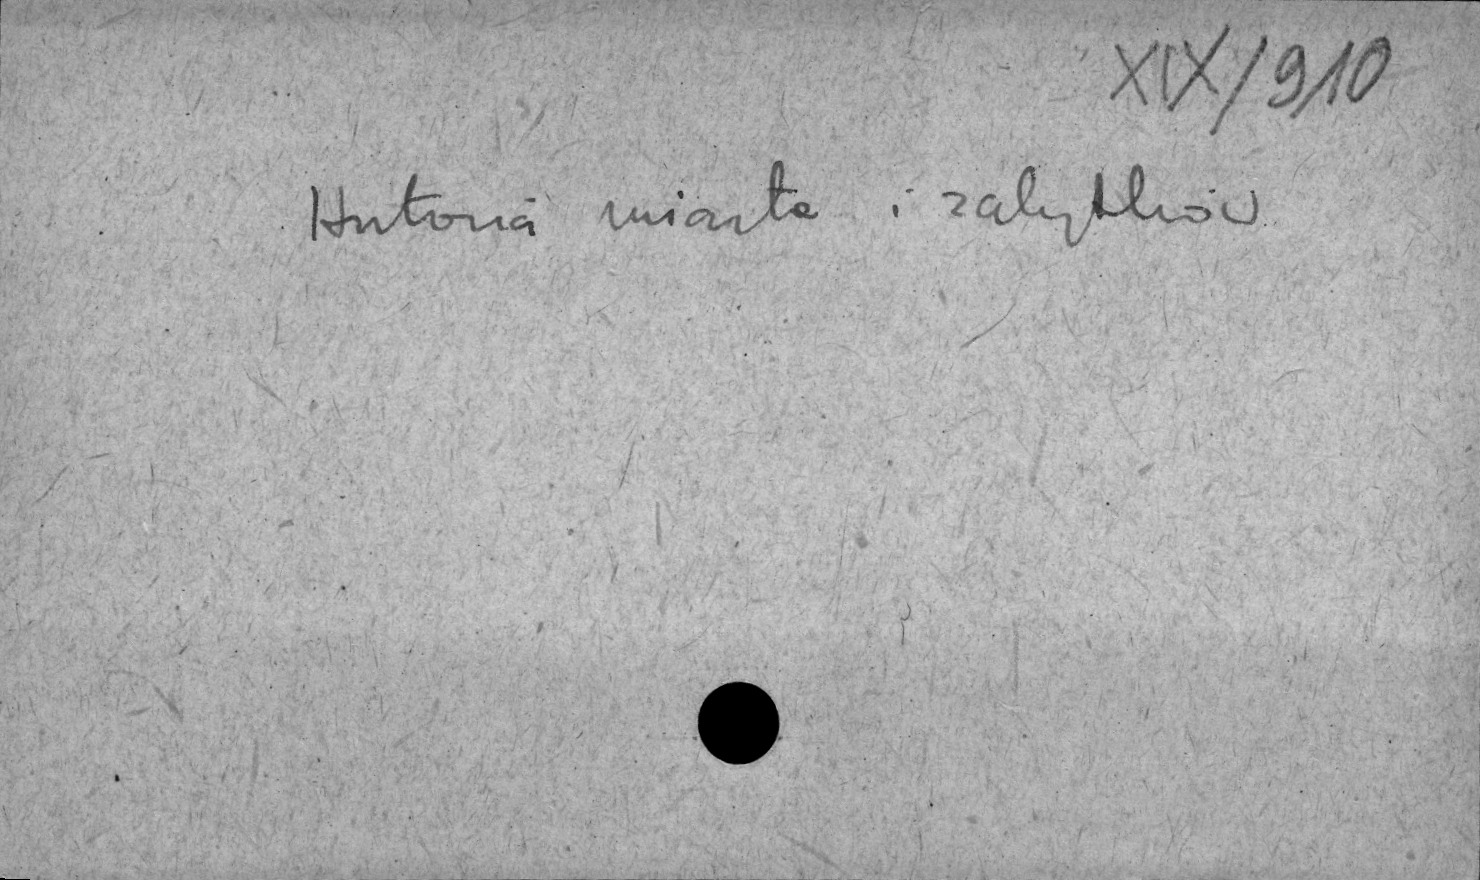 XIX/910
Historia miasta i zabytków